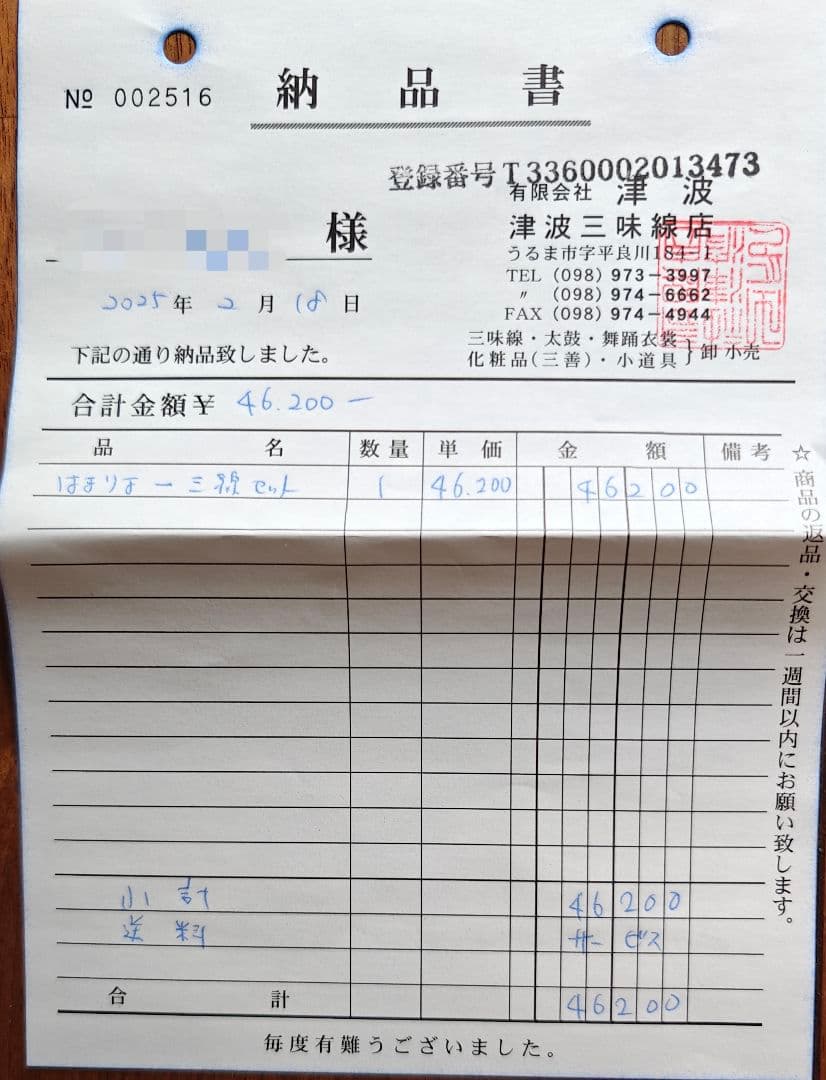 納品書
№ 002516
登録番号 T3360002013473
有限会社 津波
津波三味線店
様
うるま市字平良川184-1
TEL (098) 973-3997
〃 (098) 974-6662
FAX (098) 974-4944
2025年2月18日
三味線・太鼓・舞踊衣裳
化粧品(三善)・小道具} 卸 小売
下記の通り納品致しました。
合計金額¥ 46.200-
品名 数量 単価 金額 備考
はまりまー三線セット 1 46.200 46200
小計 46200
送料 サービス
合計 46200
毎度有難うございました。
☆商品の返品・交換は一週間以内にお願い致します。